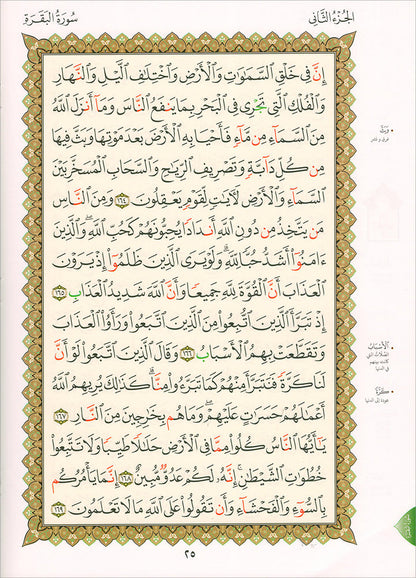 الجُزْءُ الثَّانِى
سُورَةُ البَقَرَةِ
إِنَّ فِى خَلْقِ السَّمَٰوَٰتِ وَالْأَرْضِ وَاخْتِلَٰفِ الَّيْلِ وَالنَّهَارِ
وَالْفُلْكِ الَّتِى تَجْرِى فِى الْبَحْرِ بِمَا يَنفَعُ النَّاسَ وَمَآ أَنزَلَ اللَّهُ
مِنَ السَّمَآءِ مِن مَّآءٍ فَأَحْيَا بِهِ الْأَرْضَ بَعْدَ مَوْتِهَا وَبَثَّ فِيهَا
مِن كُلِّ دَآبَّةٍ وَتَصْرِيفِ الرِّيَٰحِ وَالسَّحَابِ الْمُسَخَّرِ بَيْنَ
السَّمَآءِ وَالْأَرْضِ لَءَايَٰتٍ لِّقَوْمٍ يَعْقِلُونَ ١٦٤ وَمِنَ النَّاسِ
مَن يَتَّخِذُ مِن دُونِ اللَّهِ أَندَادًا يُحِبُّونَهُمْ كَحُبِّ اللَّهِ ۖ وَالَّذِينَ
ءَامَنُوٓا۟ أَشَدُّ حُبًّا لِّلَّهِ ۗ وَلَوْ يَرَى الَّذِينَ ظَلَمُوٓا۟ إِذْ يَرَوْنَ
الْعَذَابَ أَنَّ الْقُوَّةَ لِلَّهِ جَمِيعًا وَأَنَّ اللَّهَ شَدِيدُ الْعَذَابِ ١٦٥
إِذْ تَبَرَّأَ الَّذِينَ اتُّبِعُوا۟ مِنَ الَّذِينَ اتَّبَعُوا۟ وَرَأَوُا۟ الْعَذَابَ
وَتَقَطَّعَتْ بِهِمُ الْأَسْبَابُ ١٦٦ وَقَالَ الَّذِينَ اتَّبَعُوا۟ لَوْ أَنَّ
لَنَا كَرَّةً فَنَتَبَرَّأَ مِنْهُمْ كَمَا تَبَرَّءُوا۟ مِنَّا ۗ كَذَٰلِكَ يُرِيهِمُ اللَّهُ
أَعْمَٰلَهُمْ حَسَرَٰتٍ عَلَيْهِمْ ۖ وَمَا هُم بِخَٰرِجِينَ مِنَ النَّارِ ١٦٧
يَٰٓأَيُّهَا النَّاسُ كُلُوا۟ مِمَّا فِى الْأَرْضِ حَلَٰلًا طَيِّبًا وَلَا تَتَّبِعُوا۟
خُطُوَٰتِ الشَّيْطَٰنِ ۚ إِنَّهُۥ لَكُمْ عَدُوٌّ مُّبِينٌ ١٦٨ إِنَّمَا يَأْمُرُكُم
بِالسُّوٓءِ وَالْفَحْشَآءِ وَأَن تَقُولُوا۟ عَلَى اللَّهِ مَا لَا تَعْلَمُونَ ١٦٩
٢٥
• وَبَثَّ
• الْأَسْبَابُ
الصلات التي
كانت بينهم
في الدنيا
• كَرَّةً
عودة إلى الدنيا